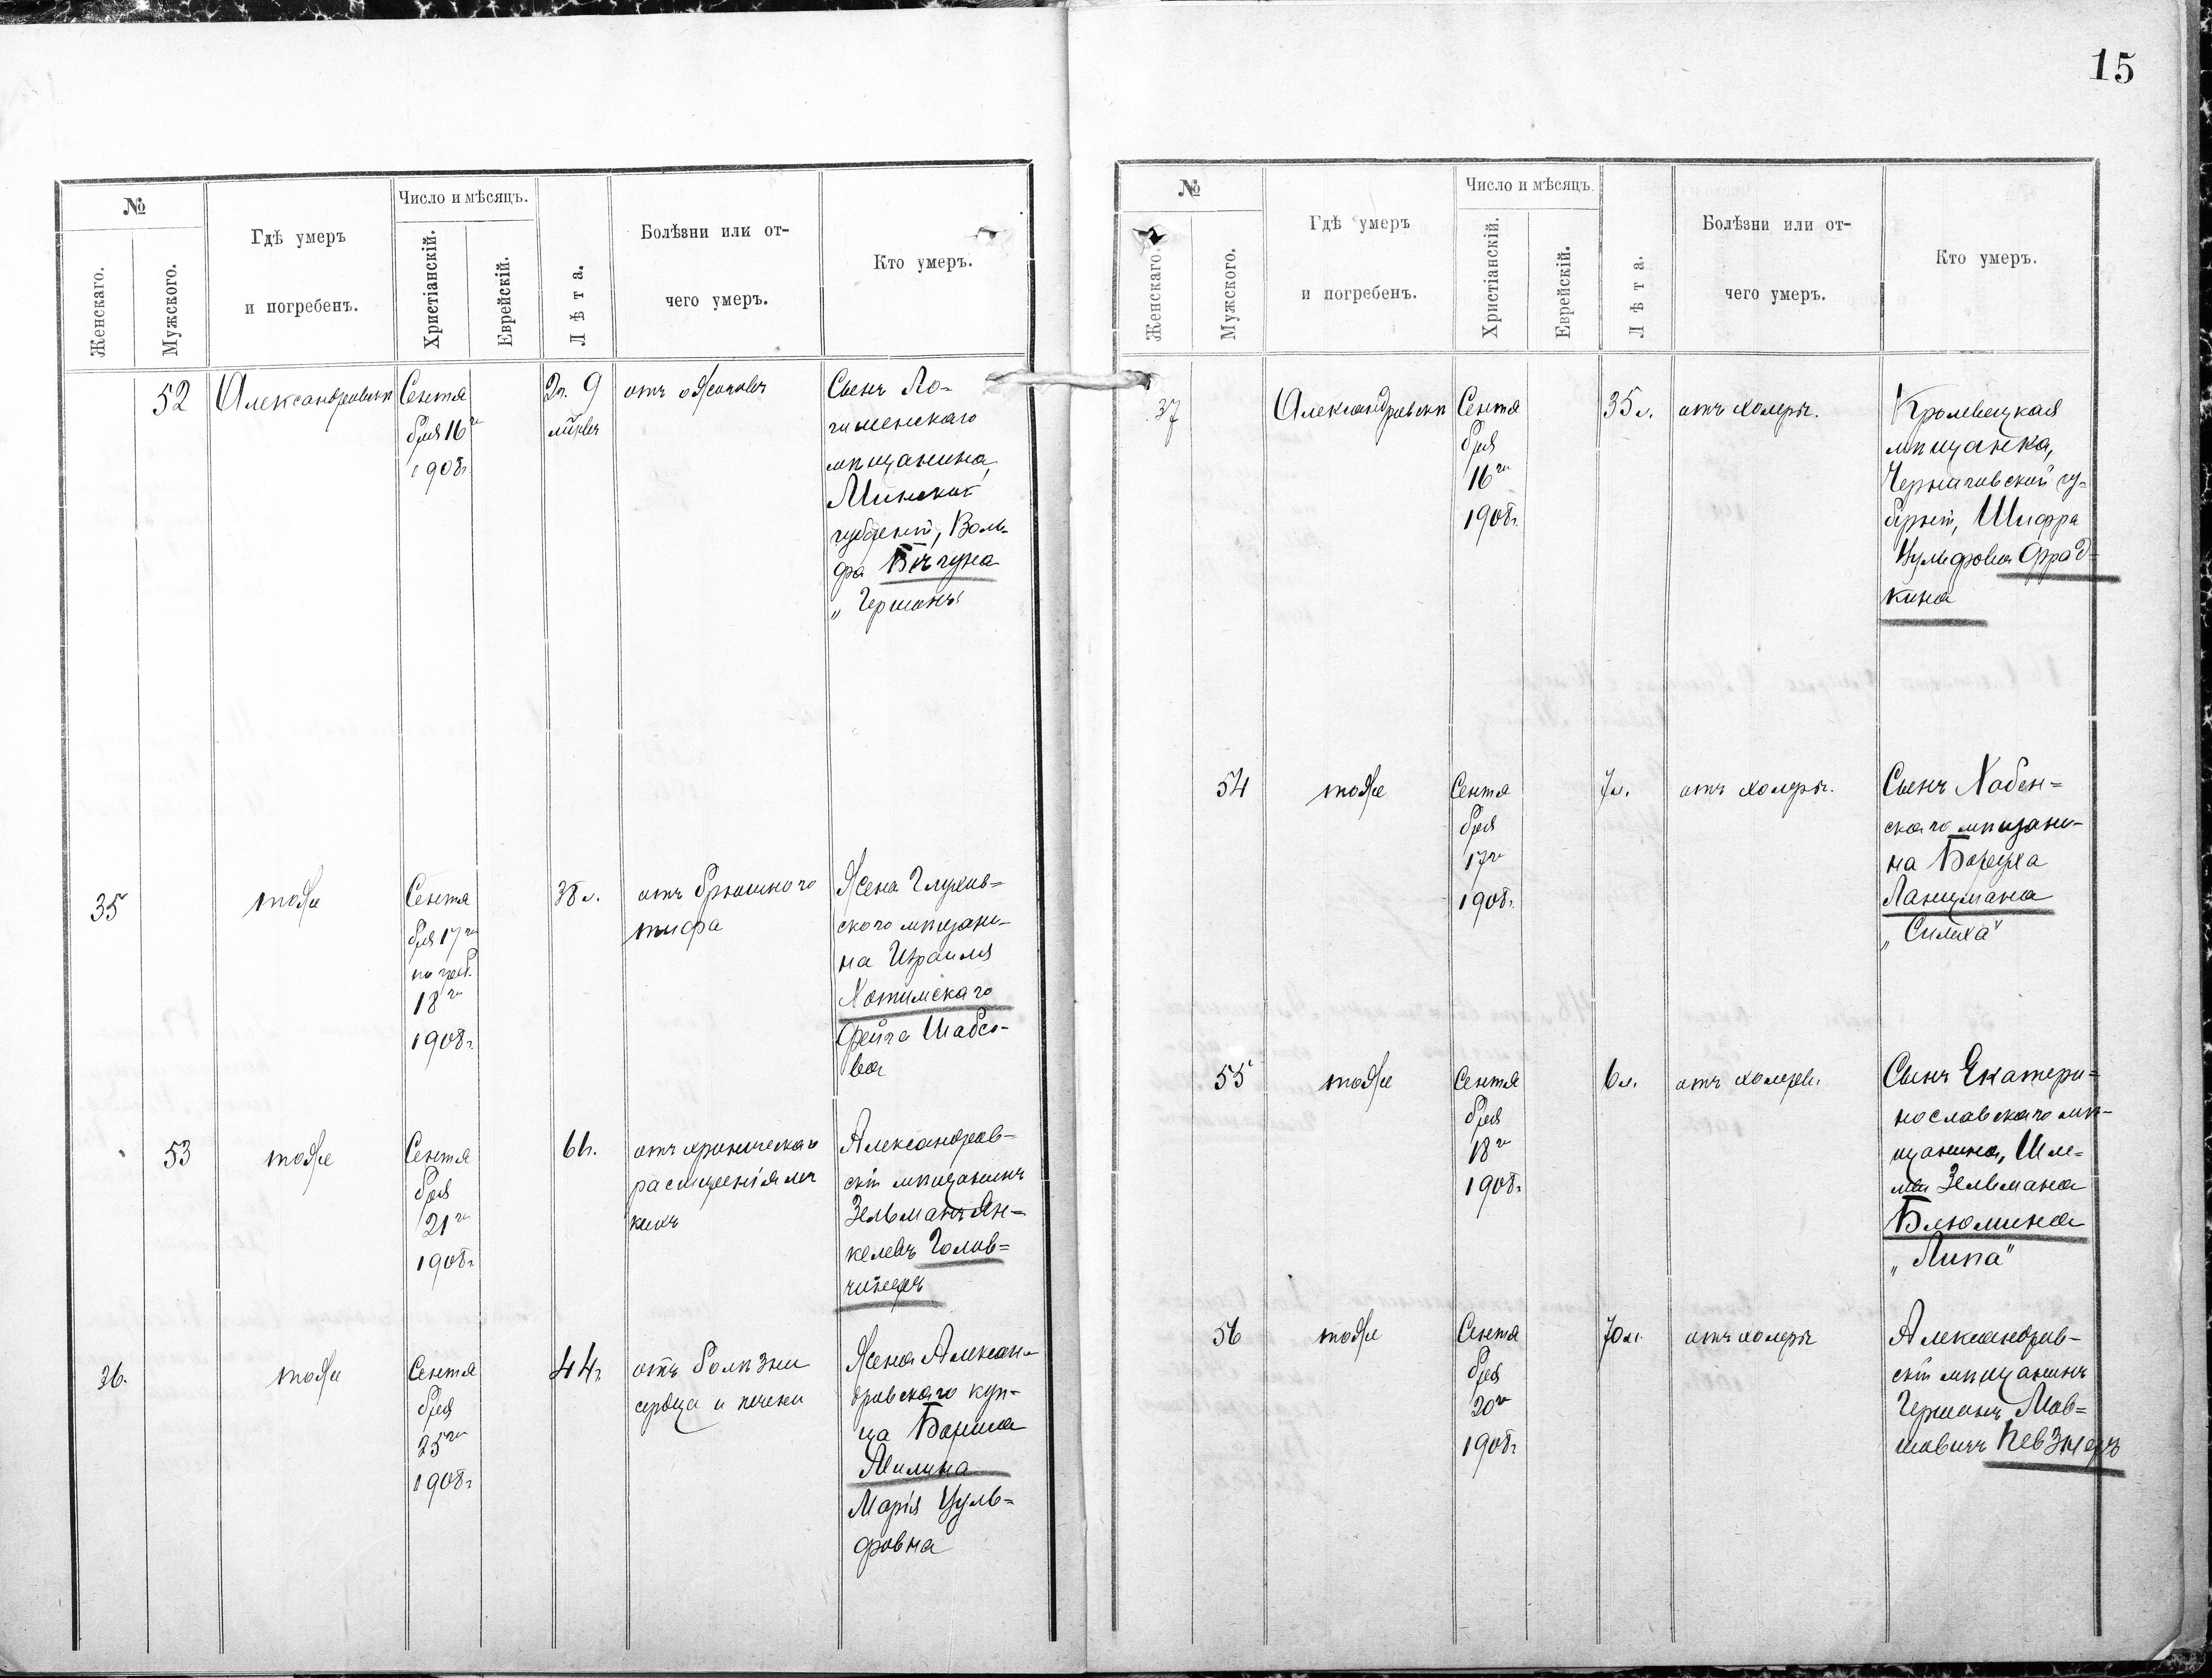 15
№
Женскаго.
Мужского.
Гдѣ умеръ
и погребенъ.
Число и мѣсяцъ.
Христіанскій.
Еврейскій.
Лѣта.
Болѣзни или от-
чего умеръ.
Кто умеръ.
52
Александровскъ
Сентя
бря 16го
1908г.
2г. 9
мѣсяц
отъ ожоговъ
Сынъ Ло-
гишенскаго
мѣщанина,
Минской
губерніи, Воль-
фа Бѣгуна
„Гершонъ"
35
тоже
Сентя
бря 17го
погреб.
18го
1908г.
38 л.
отъ брюшного
тифа
Жена Глухов-
ского мѣщани-
на Израиля
Хотимскаго
Фейга Шабсо-
ва
53
тоже
Сентя
бря
21го
1908г.
61г.
отъ хроническаго
расширенія лег
кихъ
Александров-
скій мѣщанинъ
Зельманъ Ян-
келевъ Голов-
чинеръ
36.
тоже
Сентя
бря
25го
1908г.
44г.
отъ болѣзни
сердца и печени
Жена Алексан-
дровскаго куп-
ца Бориса
Милина
Марія Цуль-
фовна
№
Женскаго.
Мужского.
Гдѣ умеръ
и погребенъ.
Число и мѣсяцъ.
Христіанскій.
Еврейскій.
Лѣта.
Болѣзни или от-
чего умеръ.
Кто умеръ.
37
Александровскъ
Сентя
бря
16го
1908г.
35 л.
отъ холеры.
Кролевецкая
мѣщанка,
Черниговской гу-
берніи, Шифра
Вульфовна Фрад-
кина
54
тоже
Сентя
бря
17го
1908г.
7 л.
отъ холеры.
Сынъ Хабен-
скаго мѣщани-
на Боруха
Ланцмана
„Силиха"
55
тоже
Сентя
бря
18го
1908г.
6 л.
отъ холеры.
Сынъ Екатери-
нославскаго мѣ-
щанина, Шле-
мы Зельмана
Блюмина
„Липа"
56
тоже
Сентя
бря
20го
1908г.
70 л.
отъ холеры
Александров-
скій мѣщанинъ
Гершонъ Мов-
шовичъ Певзнеръ